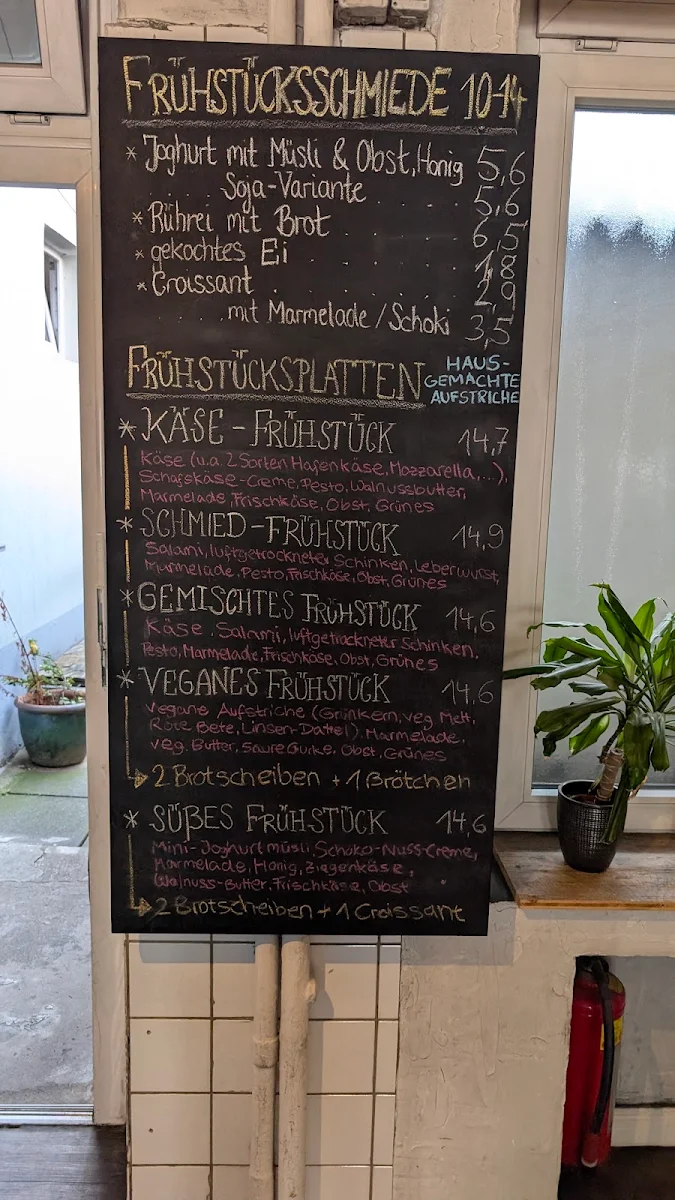 FRÜHSTÜCKSSCHMIEDE 10-14
* Joghurt mit Müsli & Obst, Honig 5,6
Soja-Variante 5,6
* Rührei mit Brot . . . . 6,5
* gekochtes Ei . . . . 1,8
* Croissant . . . . . 2,9
. . . mit Marmelade / Schoki 3,5
FRÜHSTÜCKSPLATTEN
HAUS-
GEMACHTE
AUFSTRICHE
* KÄSE-FRÜHSTÜCK 14,7
Käse (u.a. 2 Sorten Hafenkäse, Mozzarella,...),
Schafskäse-Creme, Pesto, Walnussbutter,
Marmelade, Frischkäse, Obst, Grünes
* SCHMIED-FRÜHSTÜCK 14,9
Salami, luftgetrockneter Schinken, Leberwurst,
Marmelade, Pesto, Frischkäse, Obst, Grünes
* GEMISCHTES FRÜHSTÜCK 14,6
Käse, Salami, luftgetrockneter Schinken,
Pesto, Marmelade, Frischkäse, Obst, Grünes
* VEGANES FRÜHSTÜCK 14,6
vegane Aufstriche (Grünkern, veg. Mett,
Rote Bete, Linsen-Dattel), Marmelade,
veg. Butter, Saure Gurke, Obst, Grünes
2 Brotscheiben + 1 Brötchen
* SÜßES FRÜHSTÜCK 14,6
Mini-Joghurtmüsli, Schoko-Nuss-Creme,
Marmelade, Honig, Ziegenkäse,
Walnuss-Butter, Frischkäse, Obst
2 Brotscheiben + 1 Croissant